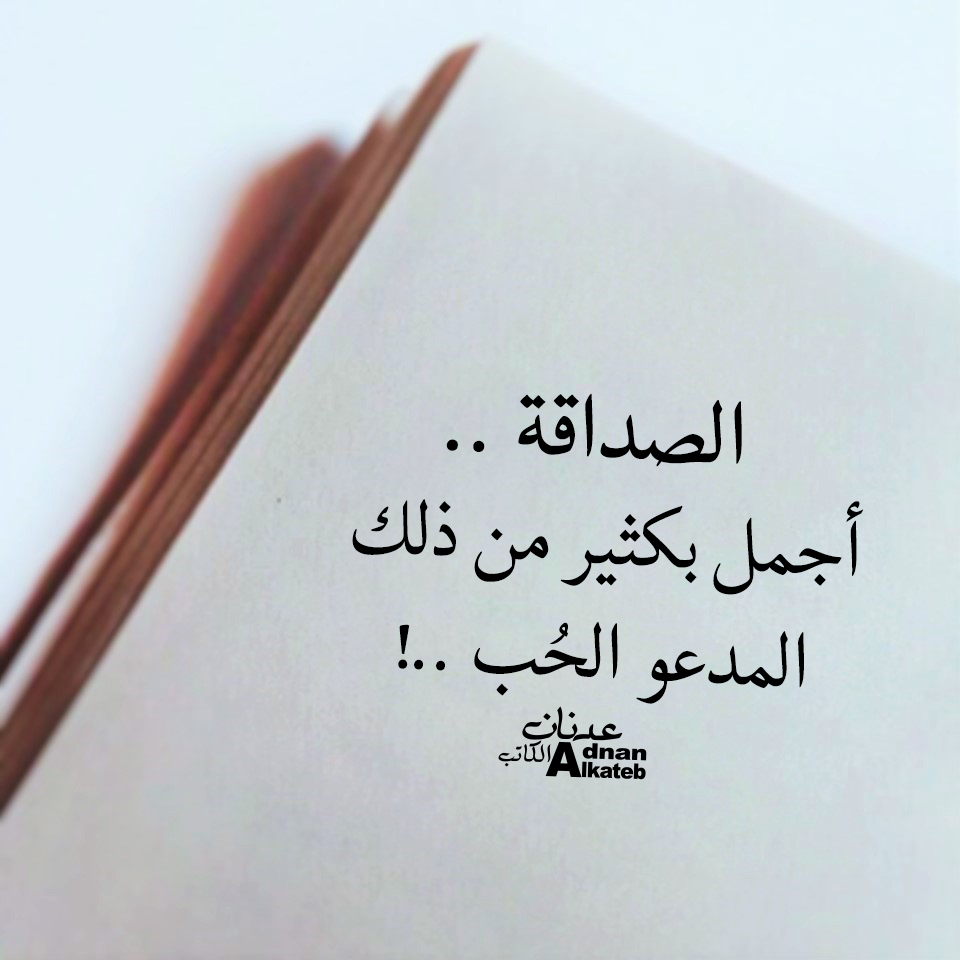 الصداقة ..
أجمل بكثير من ذلك
المدعو الحُب ..!
عدنان
الكاتب Adnan
Alkateb